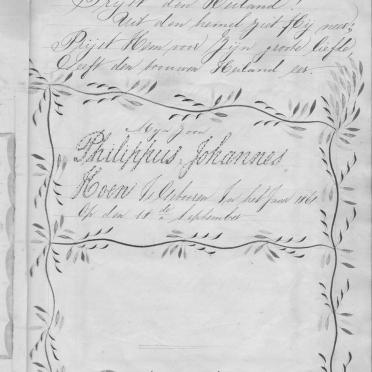 Prijst den Heiland!
Uit den hemel ziet Hij neer,
Prijst Hem voor Zijn groote liefde
Geeft den trouwen Heiland eer.
Mijn Zoon
Philippus Johannes
Hoen Is Gebooren In het Jaar
Op den 18 de September